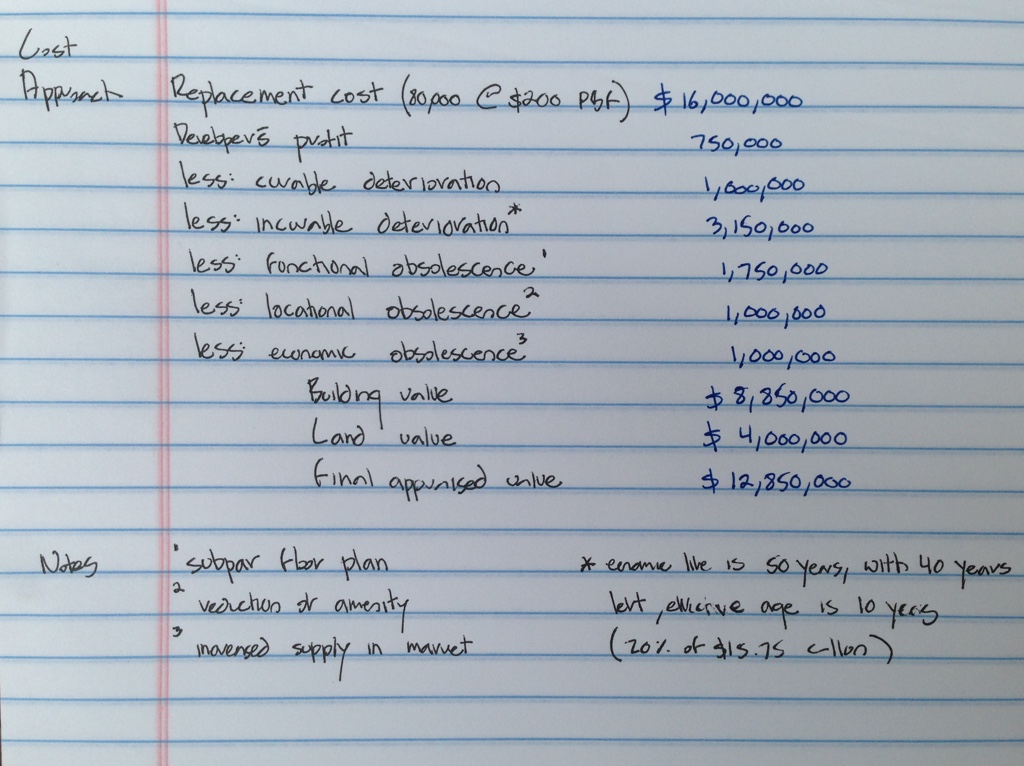 Cost
Approach Replacement cost (80,000 @ $200 PSF) $16,000,000
Developer's profit 750,000
less: curable deterioration 1,000,000
less: incurable deterioration* 3,150,000
less: functional obsolescence¹ 1,750,000
less: locational obsolescence² 1,000,000
less: economic obsolescence³ 1,000,000
Building value $8,850,000
Land value $4,000,000
Final appraised value $12,850,000
Notes ¹ subpar floor plan * economic life is 50 years, with 40 years
² reduction of amenity left, effective age is 10 years
³ increased supply in market (20% of $15.75 million)